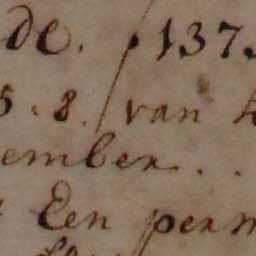 de. 137
5. 8. van
ember. .
Een perm